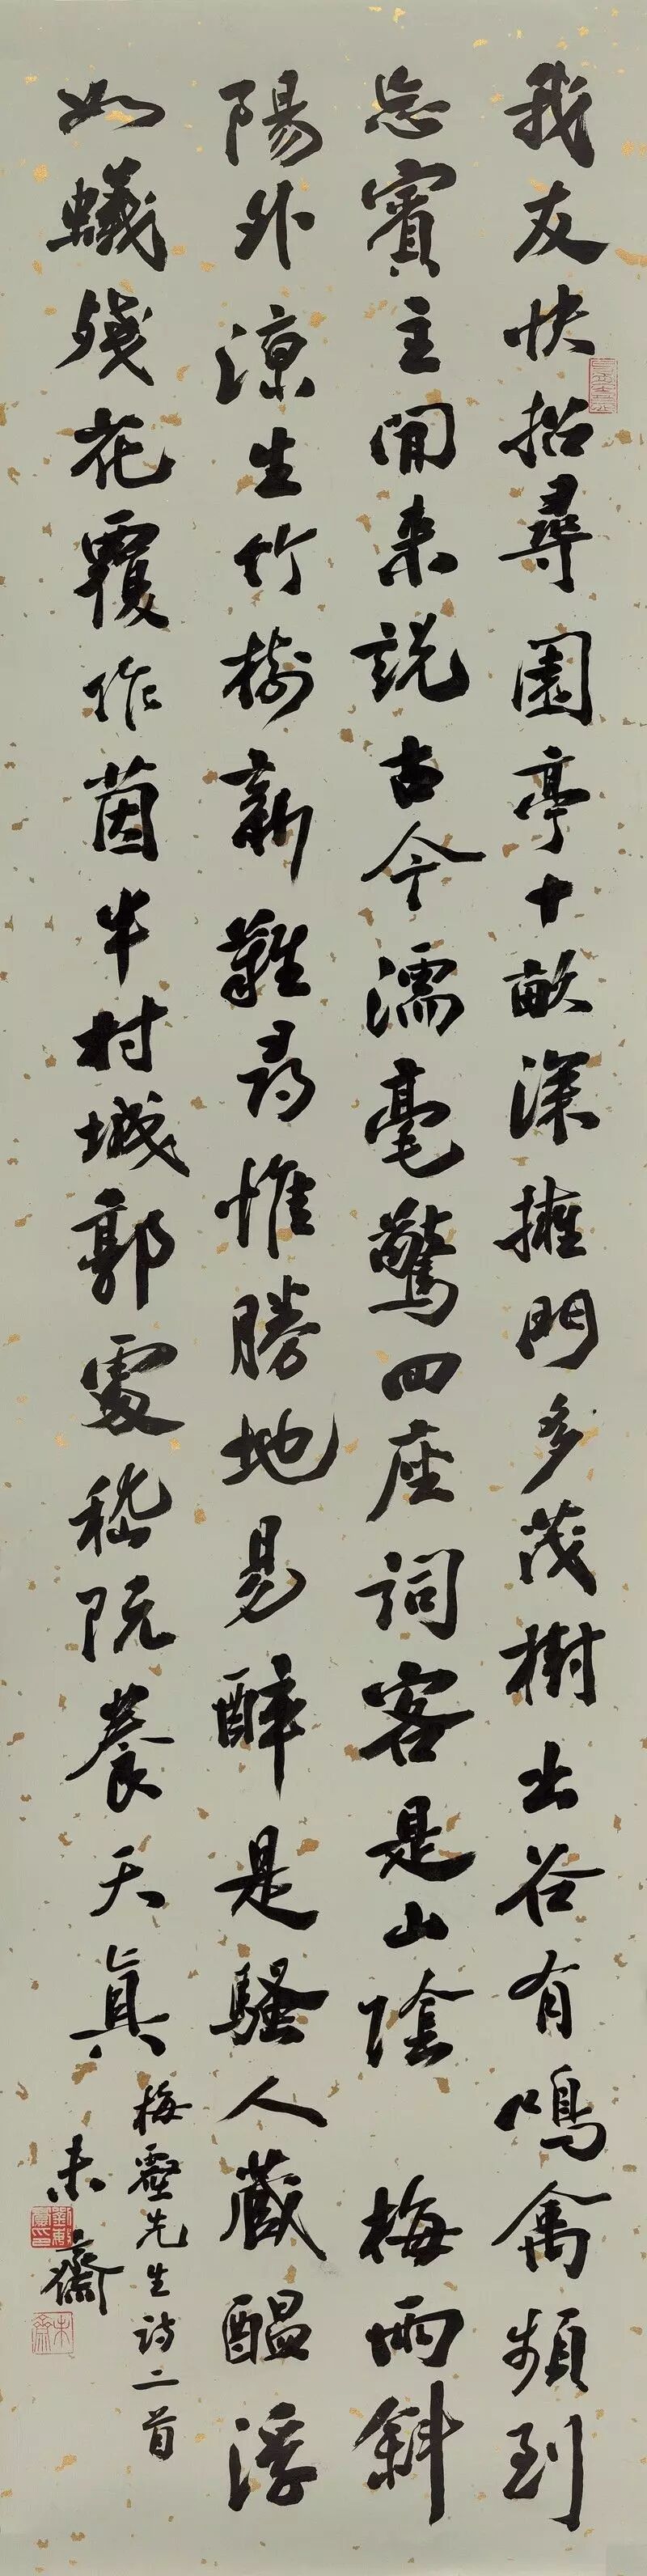 我友快招尋園亭十畝深擁門多茂樹出谷有鳴禽頻到
忘賓主閒来説古今濡毫驚四座詞客是山陰 梅雨斜
陽外凉生竹樹新難尋惟勝地易醉是騷人蔵醖浮
如蟻残花覆作茵半村城郭處嵇阮養天真
梅壑先生詩二首
未齋